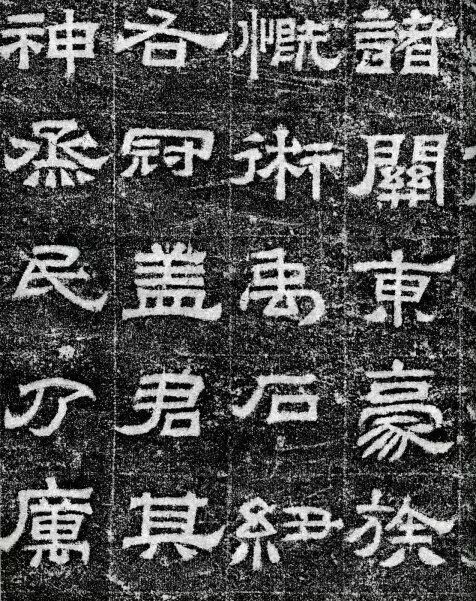 諸關東豪族
慨術禹石紐
右冠盖君其
神烝民乃厲